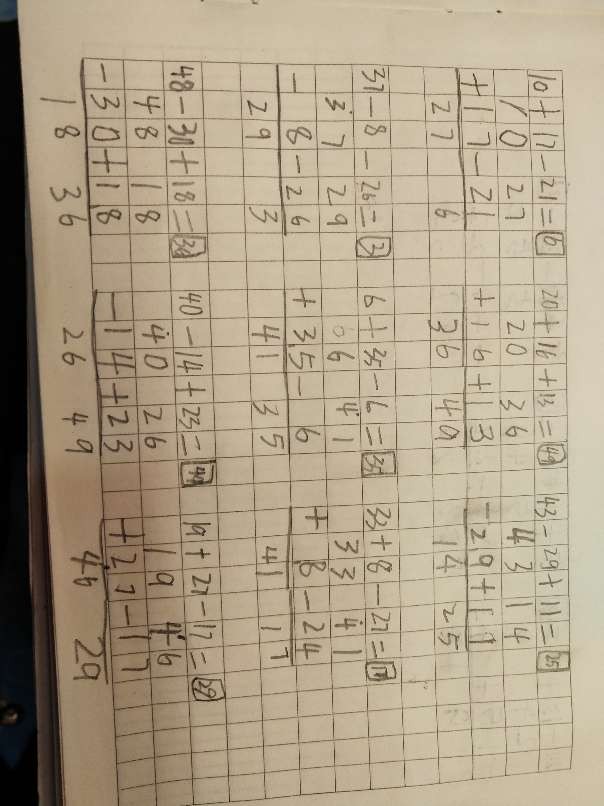 10+17-21=6 20+16+13=49 43-29+11=25
10 27 20 36 43 14
+17-21 +16+13 -29+11
27 6 36 49 14 25
37-8-26=3 6+35-6=35 33+8-24=17
37 29 06 41 33 41
- 8-26 +35- 6 + 8-24
29 3 41 35 41 17
48-30+18=36 40-14+23=49 19+27-17=29
48 18 40 26 19 46
-30+18 -14+23 +27-17
18 36 26 49 46 29